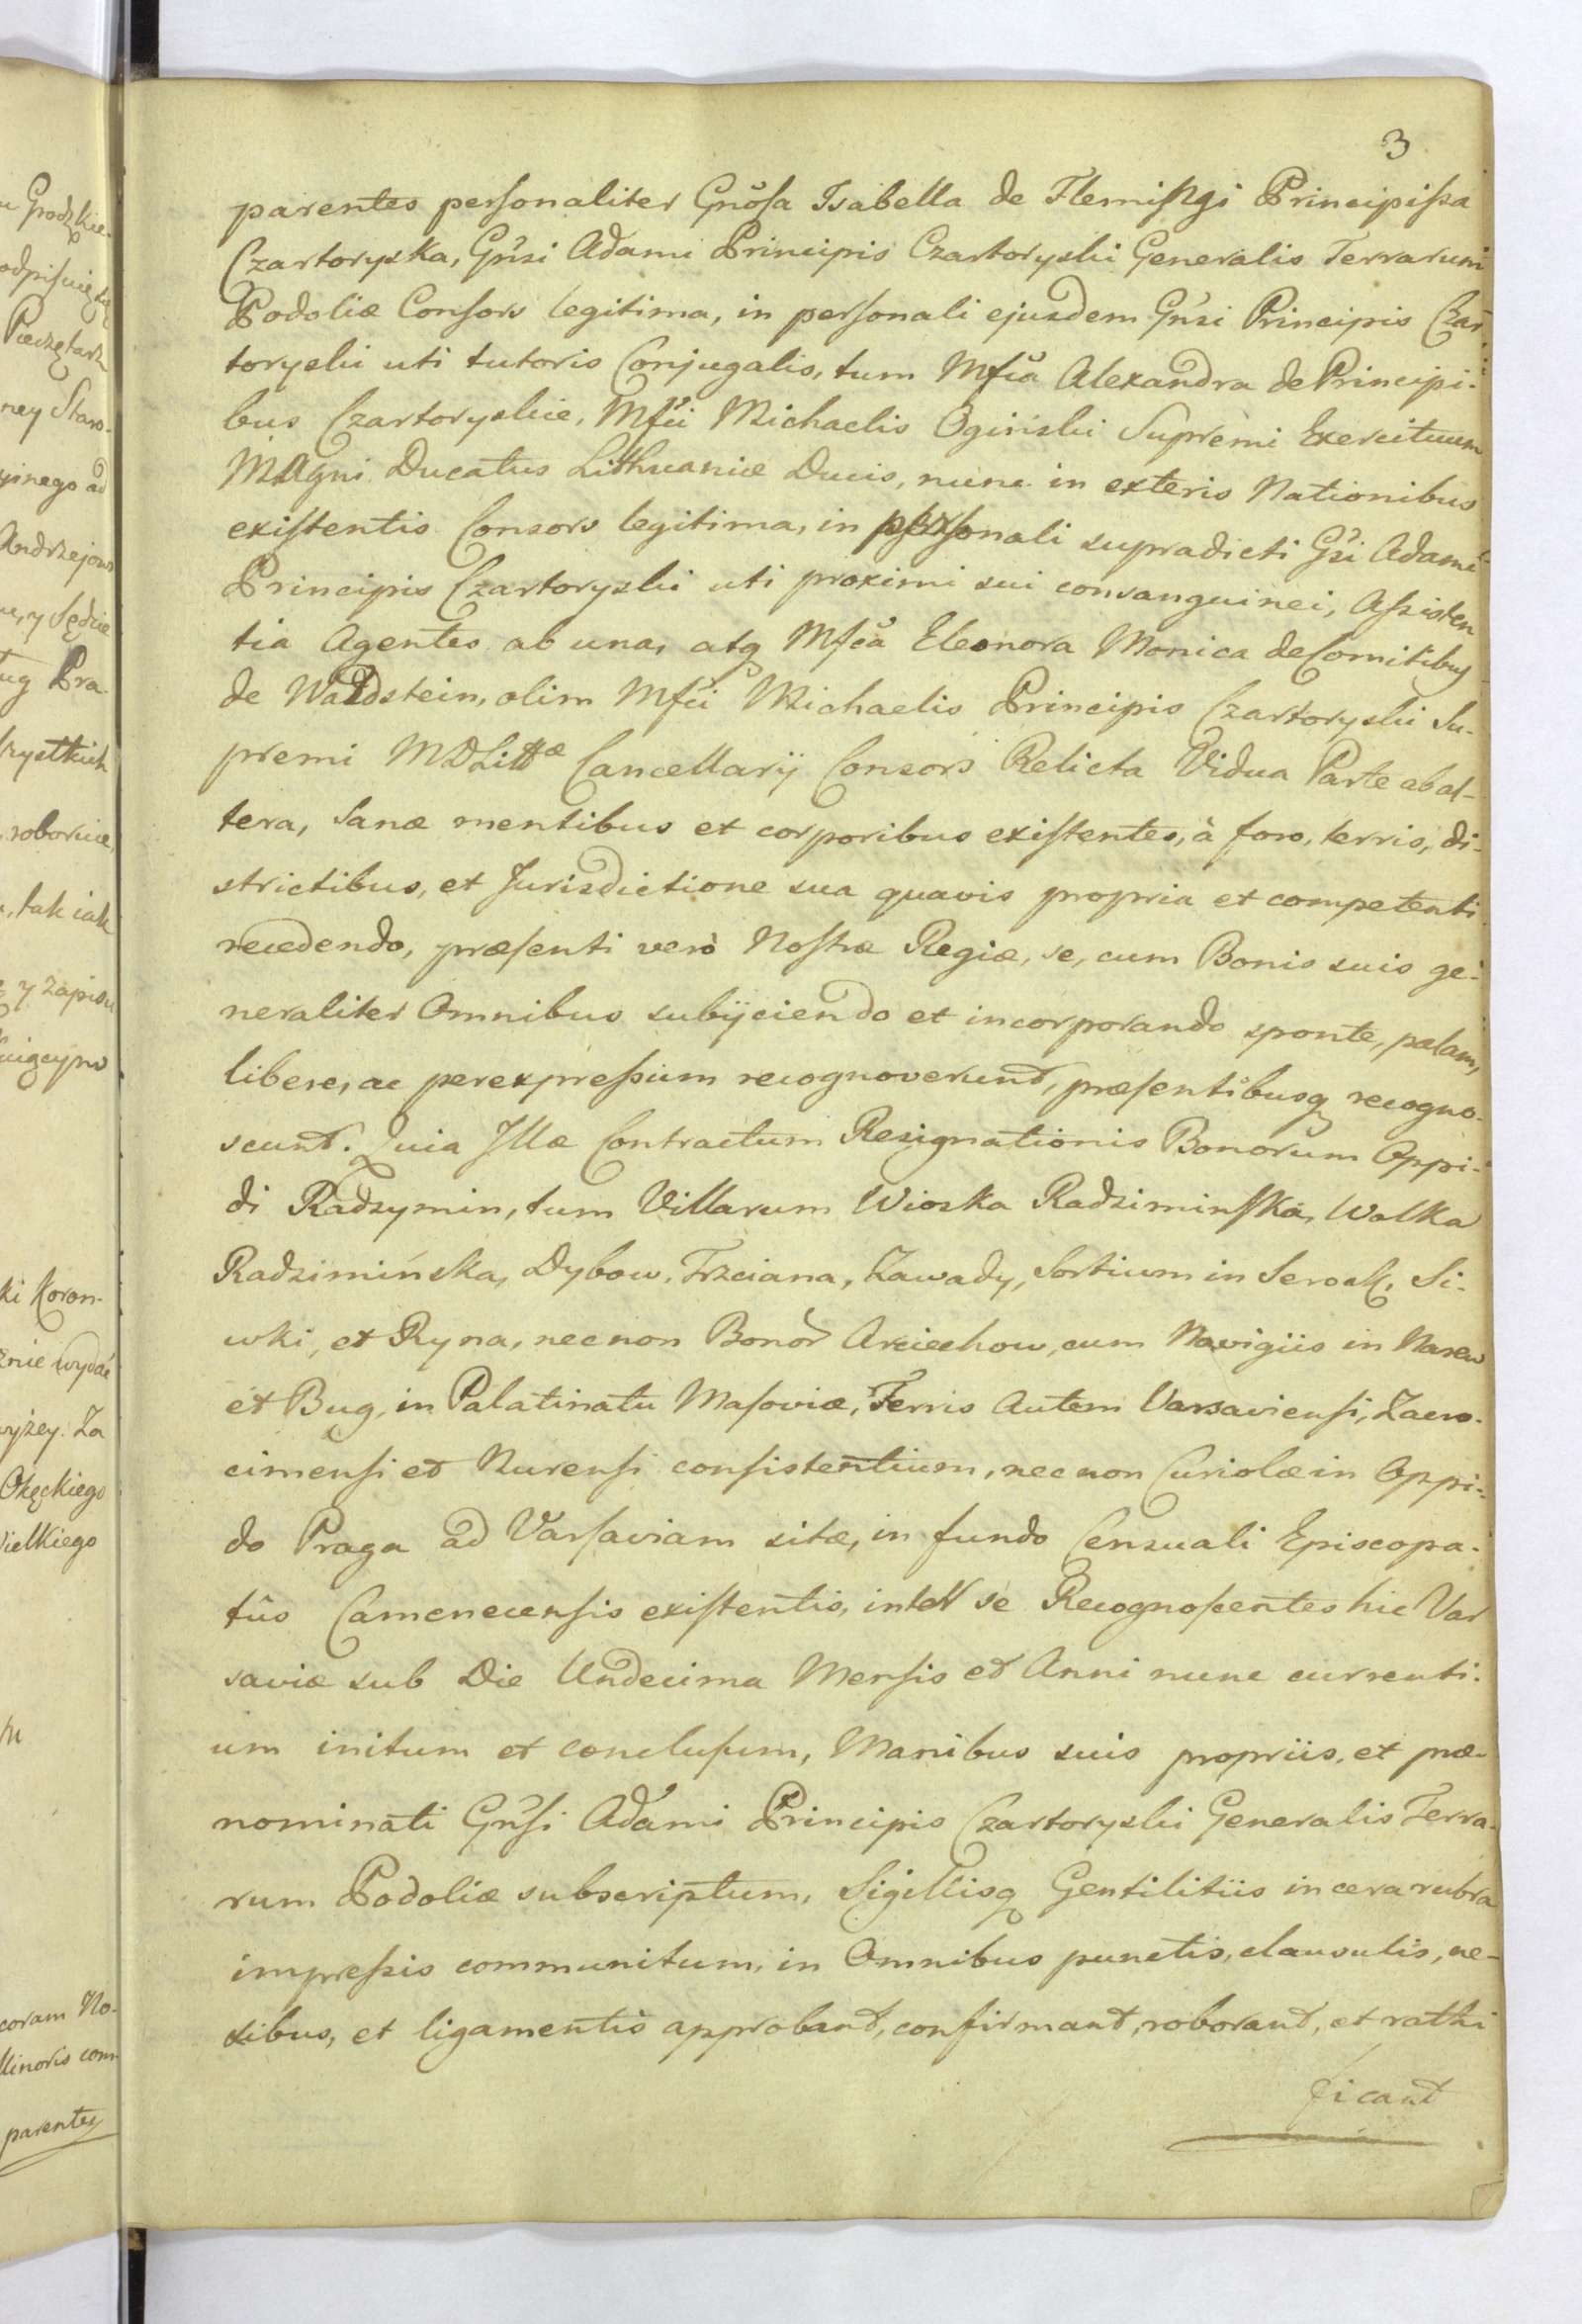 3
parentes personaliter Gnosa Isabella de Flemingi Principissa
Czartoryska, Gnsi Adami Principis Czartoryski Generalis Terrarum
Podoliæ Consors legitima, in personali ejusdem Gnsi Principis Czar-
toryski uti tutoris Conjugalis, tum Mfca Alexandra de Principi-
bus Czartoryskie, Mfci Michaelis Ogiński Supremi Exercituum
Magni Ducatus Lithuaniæ Ducis, nunc in exteris Nationibus
existentis Consors legitima, in personali supradicti Gsi Adami
Principis Czartoryski uti proximi sui consanguinei, Assisten
tia Agentes ab una, atq Mfca Eleonora Monica de Comitibus
de Waldstein, olim Mfci Michaelis Principis Czartoryski Su-
premi MDLittæ Cancellarij Consors Relicta Vidua Parte ab al-
tera, Sanæ mentibus et corporibus existentes, à foro, terris, di-
strictibus, et Jurisdictione sua quavis propria et competenti
recedendo, præsenti verò Nostræ Regiæ, se, cum Bonis suis ge-
neraliter Omnibus subijciendo et incorporando sponte, palam,
libere, ac per expressum recognoverunt, præsentibusq recogno-
scunt. Quia Illæ Contractum Resignationis Bonorum Oppi-
di Radzymin, tum Villarum Wioska Radziminska, Wolka
Radzimińska, Dybow, Trzciana, Zawady, Sortium in Serock, Si-
wki, et Ryna, necnon Bonor Arciechow, cum Navigiis in Narew
et Bug, in Palatinatu Masoviæ, Terris Autem Varsaviensi, Zacro-
cimensi et Nurensi consistentium, nec non Curiolæ in Oppi-
do Praga ad Varsaviam sitæ, in fundo Censuali Episcopa-
tûs Camenecensis existentis, inter se Recognoscentes hic Var
saviæ sub Die Undecima Mensis et Anni nunc currenti-
um initum et conclusum, Manibus suis propriis, et præ-
nominati Gnsi Adami Principis Czartoryski Generalis Terra-
rum Podoliæ subscriptum, Sigillisq Gentilitiis in cera rubra
impressis communitum, in Omnibus punctis, clausulis, ne-
xibus, et ligamentis approbant, confirmant, roborant, et rathi
ficant